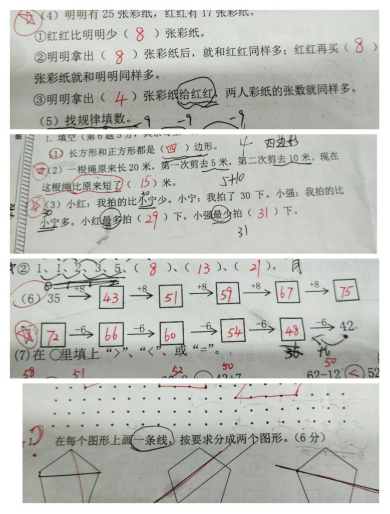 (4) 明明有 25 张彩纸，红红有 17 张彩纸。
①红红比明明少（ 8 ）张彩纸。
②明明拿出（ 8 ）张彩纸后，就和红红同样多；红红再买（ 8 ）
张彩纸就和明明同样多。
③明明拿出（ 4 ）张彩纸给红红，两人彩纸的张数就同样多。
(5) 找规律填数。 -9 -9 -9
4 四边形
(1) 长方形和正方形都是（四）边形。
(2) 一根绳原来长 20 米，第一次剪去 5 米，第二次剪去 10 米。现在
这根绳比原来短了（ 15 ）米。 5+10
(3) 小红：我拍的比小宁少。小宁：我拍了 30 下。小强：我拍的比
小宁多。小红最多拍（ 29 ）下，小强最少拍（ 31 ）下。
31
② 1、1、2、3、5、（ 8 ）、（ 13 ）、（ 21 ）。
(6) 35 +8 43 +8 51 +8 59 +8 67 +8 75
72 -6 66 -6 60 -6 54 -6 48 -6 42
36
(7) 在 ○里填上“>”、“<”、或“=”。 50
58 51 52 50 62-12 < 52
1. 在每个图形上画一条线，按要求分成两个图形。(6 分)